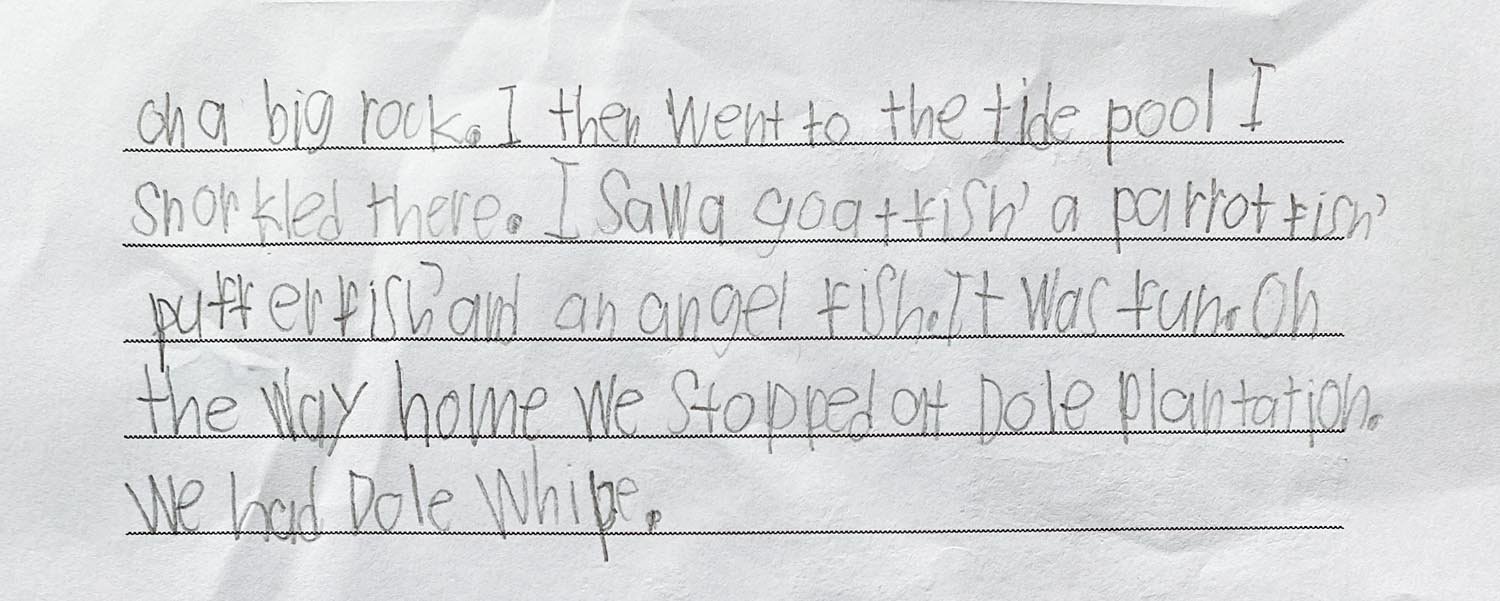 on a big rock. I then went to the tide pool I
snorkled there. I Saw a goat fish, a parrot fish,
puffer fish, and an angel fish. It was fun. On
the way home we Stopped at Dole Plantation.
We had Dole Whipe.